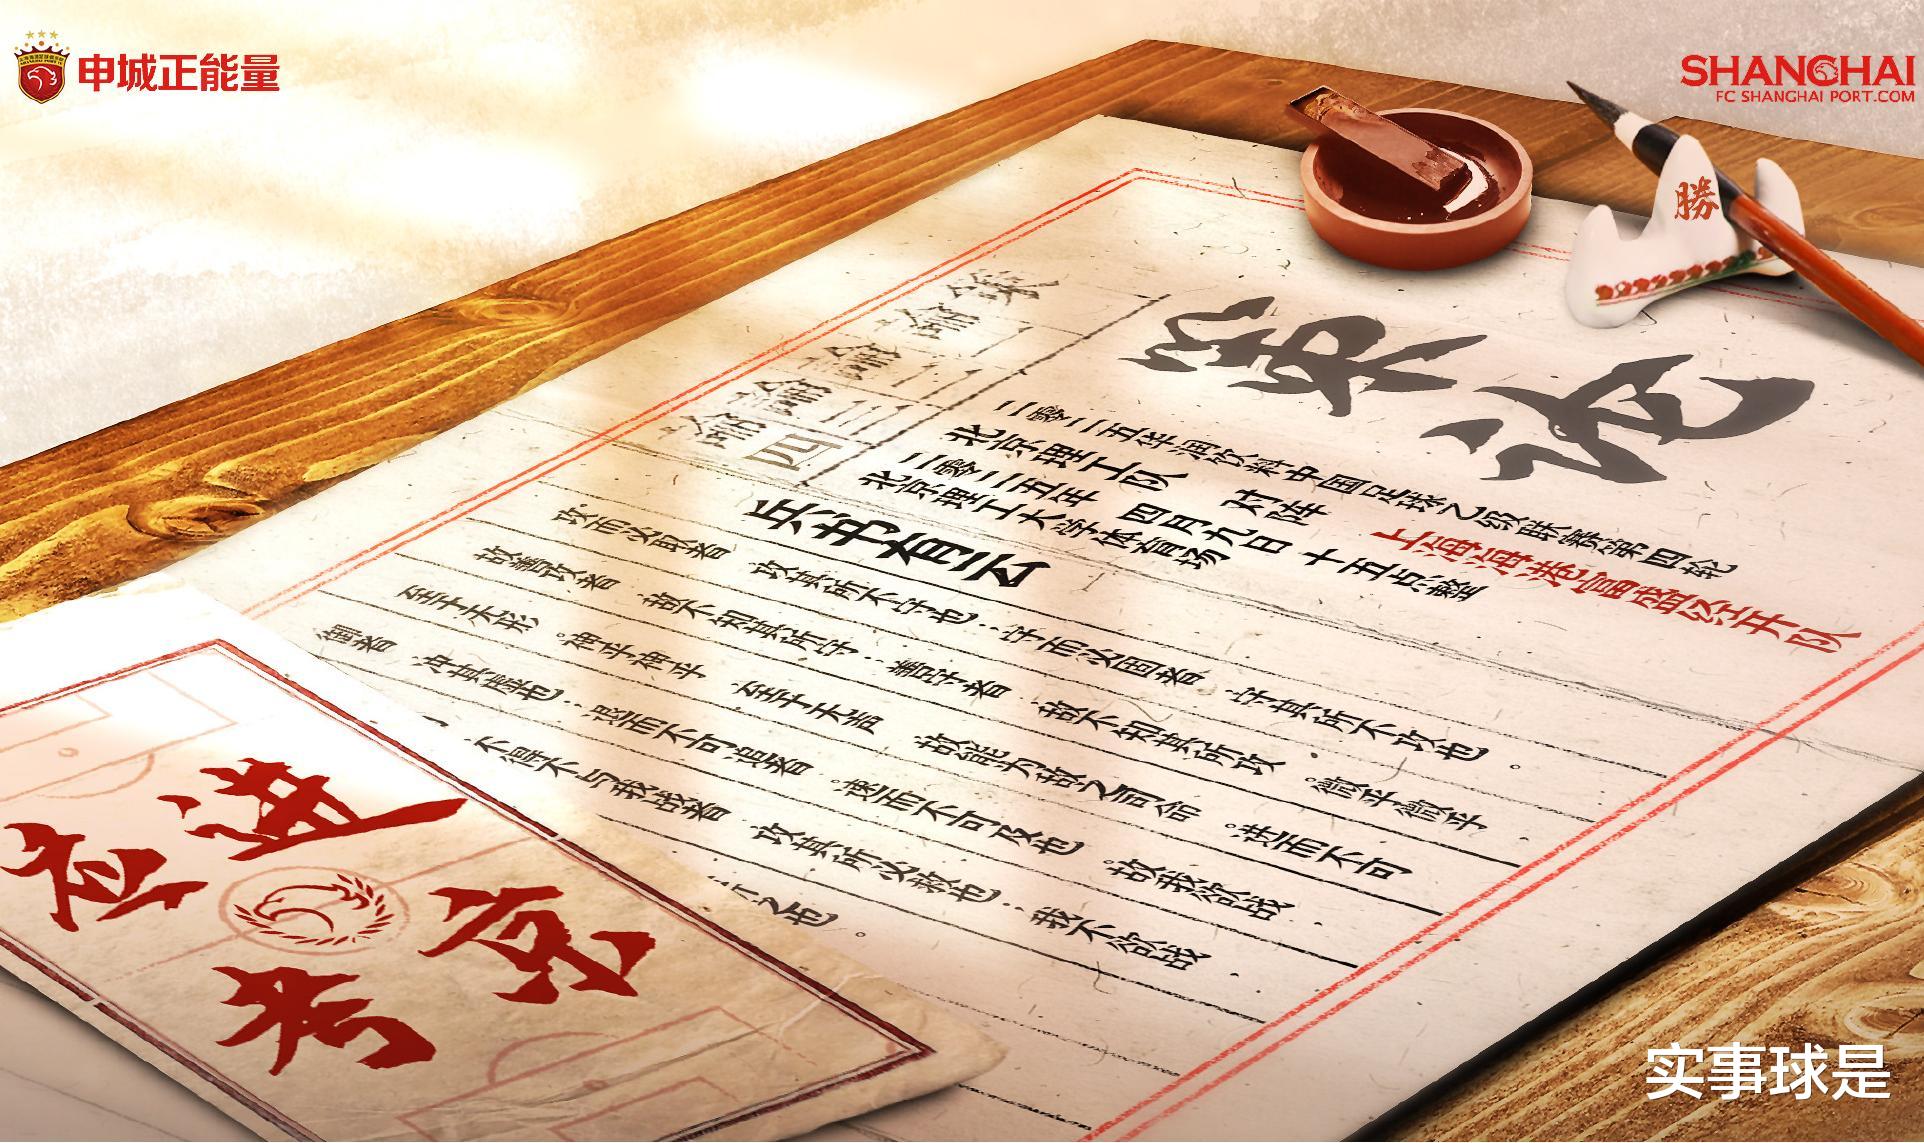 申城正能量
SHANGHAI
FC SHANGHAI PORT.COM
勝
策论
二零二五华润饮料中国足球乙级联赛第四轮
北京理工队 对阵 上海海港富盛经开队
二零二五年 四月九日 十五点整
北京理工大学体育场
策
论一
论二
论三
论四
兵书有云
攻而必取者 攻其所不守也；守而必固者 守其所不攻也。
故善攻者 敌不知其所守；善守者 敌不知其所攻。微乎微乎，
至于无形。神乎神乎 至于无声 故能为敌之司命。进而不可
御者 冲其虚也；退而不可追者 速而不可及也。故我欲战，
不得不与我战者 攻其所必救也；我不欲战，
之也。
进京
应考
实事球是